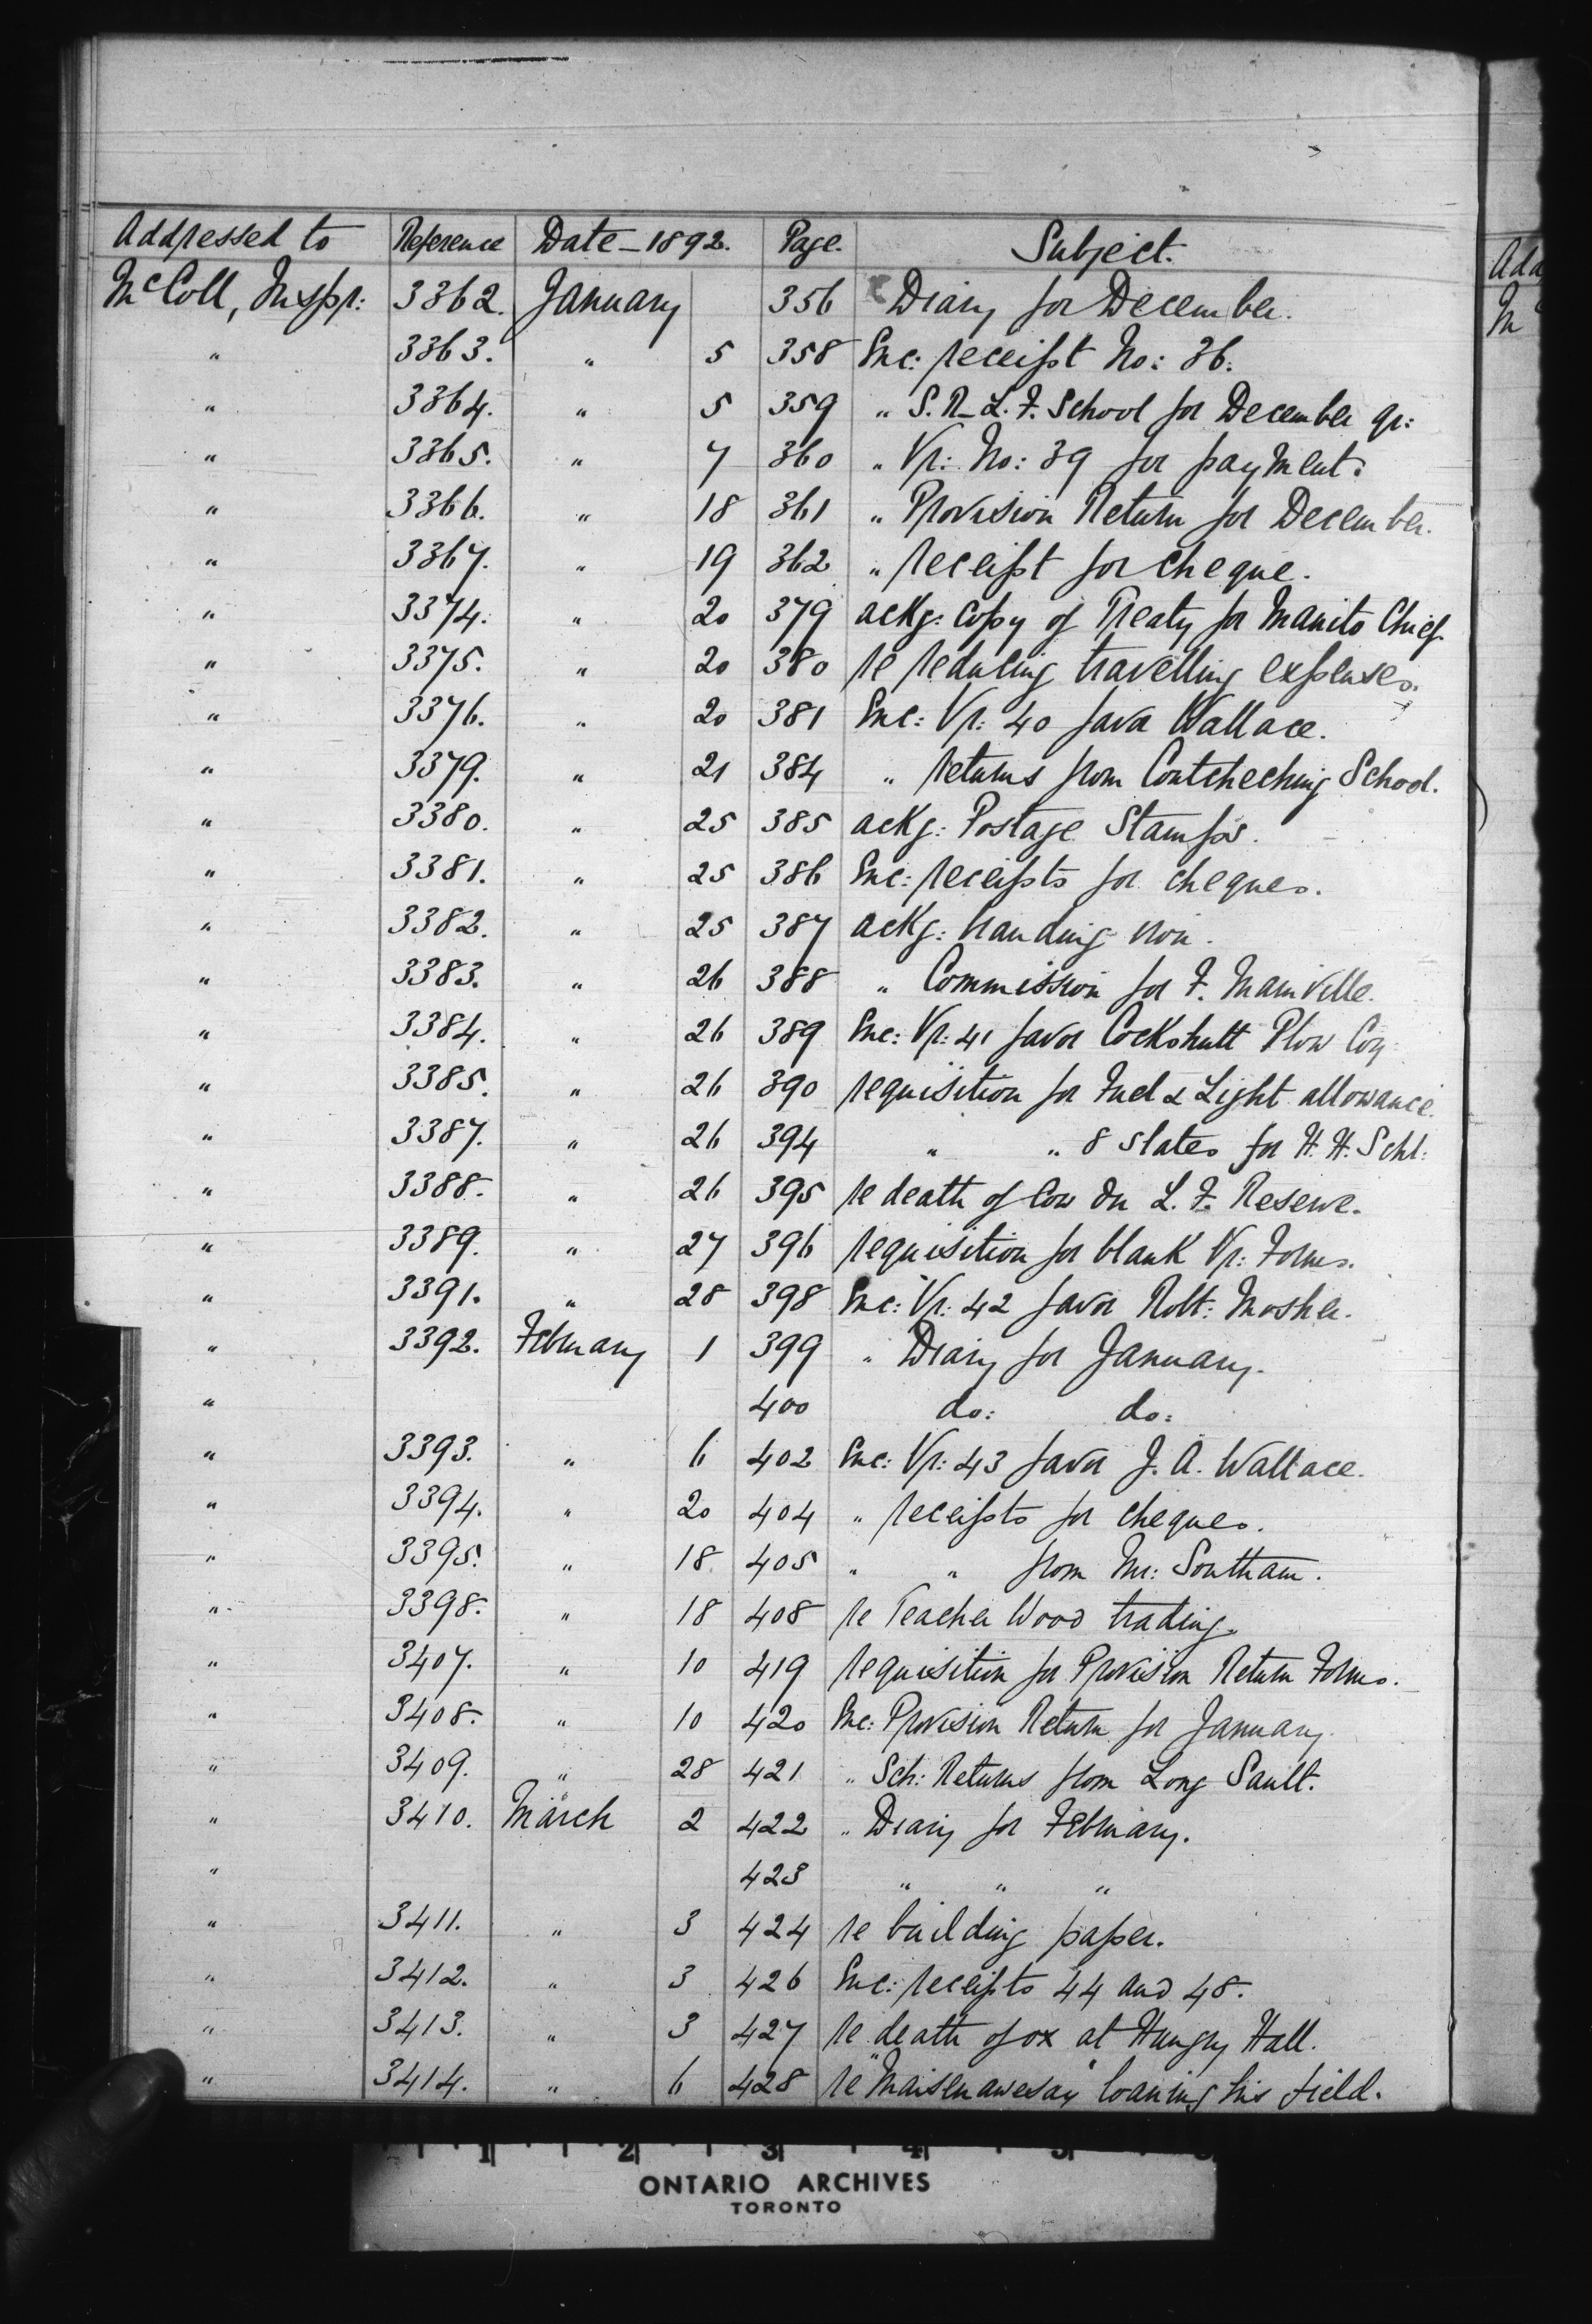 Addressed to Reference Date - 1892. Page. Subject.
McColl, Inspr: 3362. January 356 Diary for December.
" 3363. " 5 358 Enc: receipt No: 36.
" 3364. " 5 359 " S.R_L.F. School for December qr:
" 3365. " 7 360 " Vr: No: 39 for payment.
" 3366. " 18 361 " Provision Return for December.
" 3367. " 19 362 " receipt for cheque.
" 3374. " 20 379 ackg: copy of Treaty for Manito Chief
" 3375. " 20 380 re reducing travelling expenses.
" 3376. " 20 381 Enc: Vr: 40 favor Wallace.
" 3379. " 21 384 " returns from Coutcheching School.
" 3380. " 25 385 ackg: Postage Stamps.
" 3381. " 25 386 Enc: receipts for cheques.
" 3382. " 25 387 ackg: branding iron.
" 3383. " 26 388 " Commission for F. Mainville.
" 3384. " 26 389 Enc: Vr: 41 favor Cockshutt Plow Coy:
" 3385. " 26 390 requisition for Fuel & Light allowance.
" 3387. " 26 394 " " 8 slates for H.H. Schl:
" 3388. " 26 395 re death of Cow on L.F. Reserve.
" 3389. " 27 396 requisition for blank Vr: Forms.
" 3391. " 28 398 Enc: Vr: 42 favor Robt: Mosher.
" 3392. February 1 399 " Diary for January.
" 400 do: do:
" 3393. " 6 402 Enc: Vr: 43 favor J.A. Wallace.
" 3394. " 20 404 " receipts for cheques.
" 3395. " 18 405 " " from Mr: Southam.
" 3398. " 18 408 re Teacher Wood trading.
" 3407. " 10 419 requisition for Provision Return Forms.
" 3408. " 10 420 Enc: Provision Return for January.
" 3409. " 28 421 " Sch: Returns from Long Sault.
" 3410. March 2 422 " Diary for February.
" 423 " " "
" 3411. " 3 424 re building paper.
" 3412. " 3 426 Enc: receipts 44 and 48.
" 3413. " 3 427 re death of ox at Hungry Hall.
" 3414. " 6 428 re "Maisenawesay" loaning his field.
Add
M
1 2 3 4 5
ONTARIO ARCHIVES
TORONTO